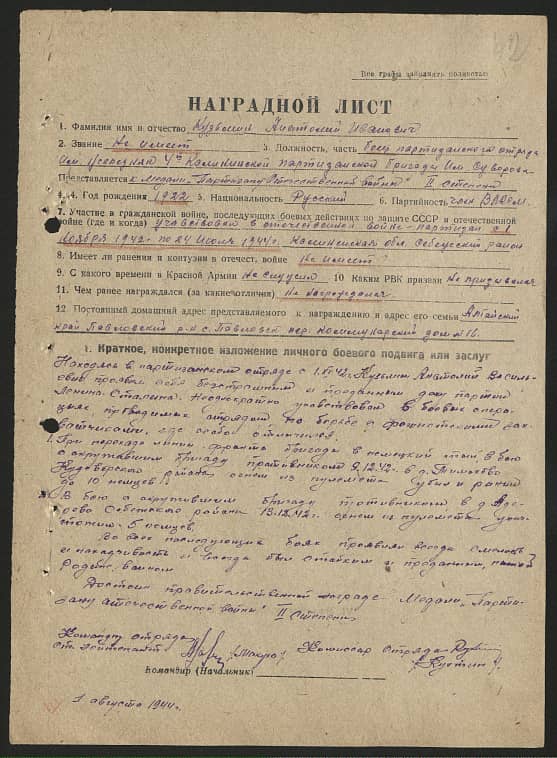 Все графы заполнять полностью
НАГРАДНОЙ ЛИСТ
1. Фамилия имя и отчество Кузьмин Анатолий Иванович
2. Звание Не имеет 3. Должность, часть боец партизанского отряда
им. 4й Калининской партизанской бригады им. Суворова
Представляется к медали „Партизану Отечественной войны" II степени
4. Год рождения 1922 5. Национальность Русский 6. Партийность член ВЛКСМ.
7. Участие в гражданской войне, последующих боевых действиях по защите СССР и отечественной
войне (где и когда) участвовал в отечественной войне-партизан с 1
Ноября 1942г. по 24 Июля 1944г. Калининская обл. Себежский район
8. Имеет ли ранения и контузии в отечест. войне Не имеет
9. С какого времени в Красной Армии Не служил 10 Каким РВК призван Не призывался
11. Чем ранее награждался (за какие отличия) Не награждался.
12. Постоянный домашний адрес представляемого к награждению и адрес его семьи Алтайский
край Павловский р-н с. Павловск пер. Коммунарский дом №16.
1. Краткое, конкретное изложение личного боевого подвига или заслуг
Находясь в партизанском отряде с 1.11.42г. Кузьмин Анатолий Василь-
евич проявил себя бесстрашным и преданным делу партии
Ленина-Сталина. Неоднократно участвовал в боевых опера-
циях, проводимых отрядом по борьбе с фашистскими зах-
ватчиками, где особо отличился:
1. При переходе линии фронта бригада в немецкий тыл. В бою
с окружавшим бригаду противником 9.12.42г. в д.
района огнем из пулемета убил и ранил
до 10 немцев.
В бою с окружившим бригаду противником в д.
Себежского района 13.12.42г. огнем из пулемета унич-
тожил 5 немцев.
Во всех последующих боях проявлял всегда смелость
и находчивость и всегда был стойким и преданным
Родине воином
Достоин правительственной награде - Медали „Парти-
зану отечественной войны" II степени
Командир отряда
ст. лейтенант Комиссар отряда
Командир (Начальник)
1 августа 1944г.